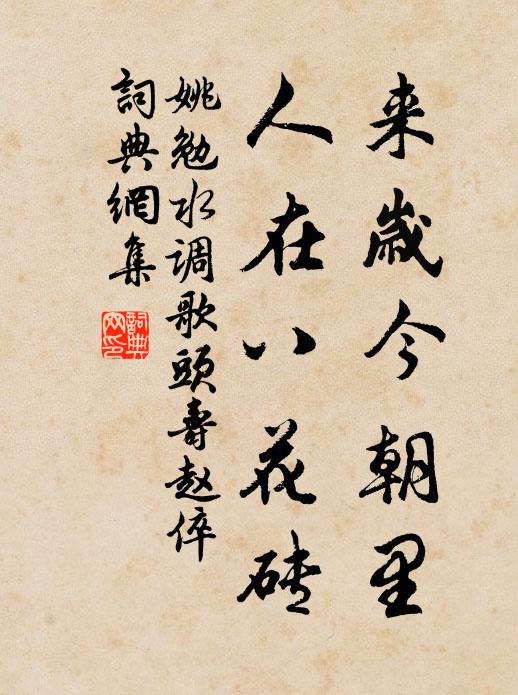 来歲今朝里
人在八花砖
姚勉水调歌頭壽赵倅
詞典網集
詞典网印